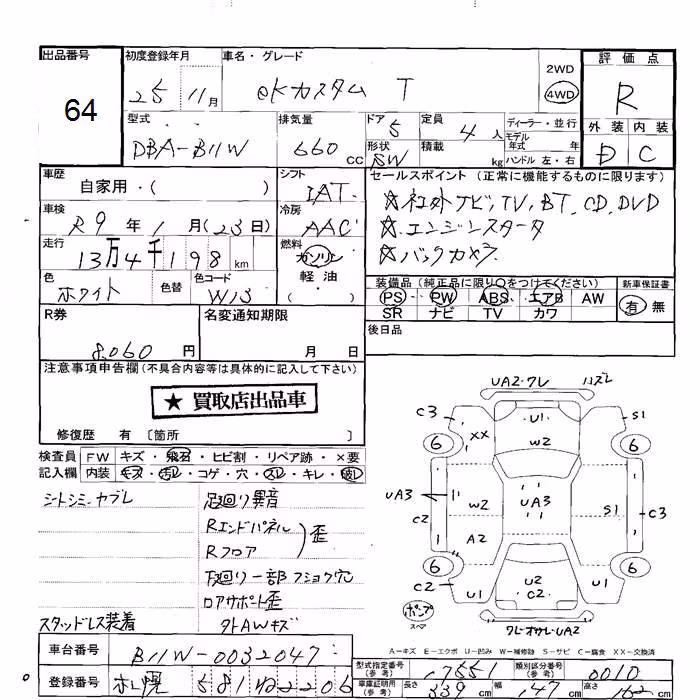 出品番号 64
初度登録年月 25 11月
車名・グレード eKカスタム T
2WD
4WD
評価点 R
外装 内装
D C
型式 DBA-B11W
排気量 660 cc
ドア 5
形状 SW
定員 4 人
積載 kg
ディーラー・並行
モデル年式 年
ハンドル 左・右
車歴 自家用・( )
シフト IAT
セールスポイント (正常に機能するものに限ります)
☆社外ナビ,TV,BT,CD,DVD
☆エンジンスターター
☆バックカメラ
車検 R9年1月(23日)
冷房 AAC
走行 13万4千198 km
燃料 ガソリン
軽油
( )
色 ホワイト
色替
色コード W13
装備品 (純正品に限り○をつけてください)
PS PW ABS エアB AW
SR ナビ TV カワ
新車保証書
有 無
R券 8,060 円
名変通知期限 月 日
後日品
注意事項申告欄 (不具合内容等は具体的に記入して下さい)
★ 買取店出品車
修復歴 有 〔箇所 〕
検査員記入欄
FW キズ・飛石・ヒビ割・リペア跡・×要
内装 キズ・汚レ・コゲ・穴・スレ・キレ・破レ
シートシミ、ヤブレ
足廻り異音
Rエンドパネル
Rフロア
歪
下廻り一部フショク穴
ロアサポート歪
スタッドレス装着
外AWキズ
UA2・ワレ ハズレ
C3 U1 S1
XX W2
6 6
UA3 W2 UA3 S1 C3
C2 A2
6 6
C2 U1 U2 C2 U1
ポンプ
スペア
ワレ・オサレ・UA2
A-キズ E-エクボ U-凹み W-補修跡 S-サビ C-腐食 XX-交換済
車台番号 B11W-0032047
型式指定番号(参考) 17551
類別区分番号(参考) 0010
登録番号 札幌 581 ね2206
車庫証明用(参考) 長さ 339 cm 幅 147 cm 高さ 162 cm